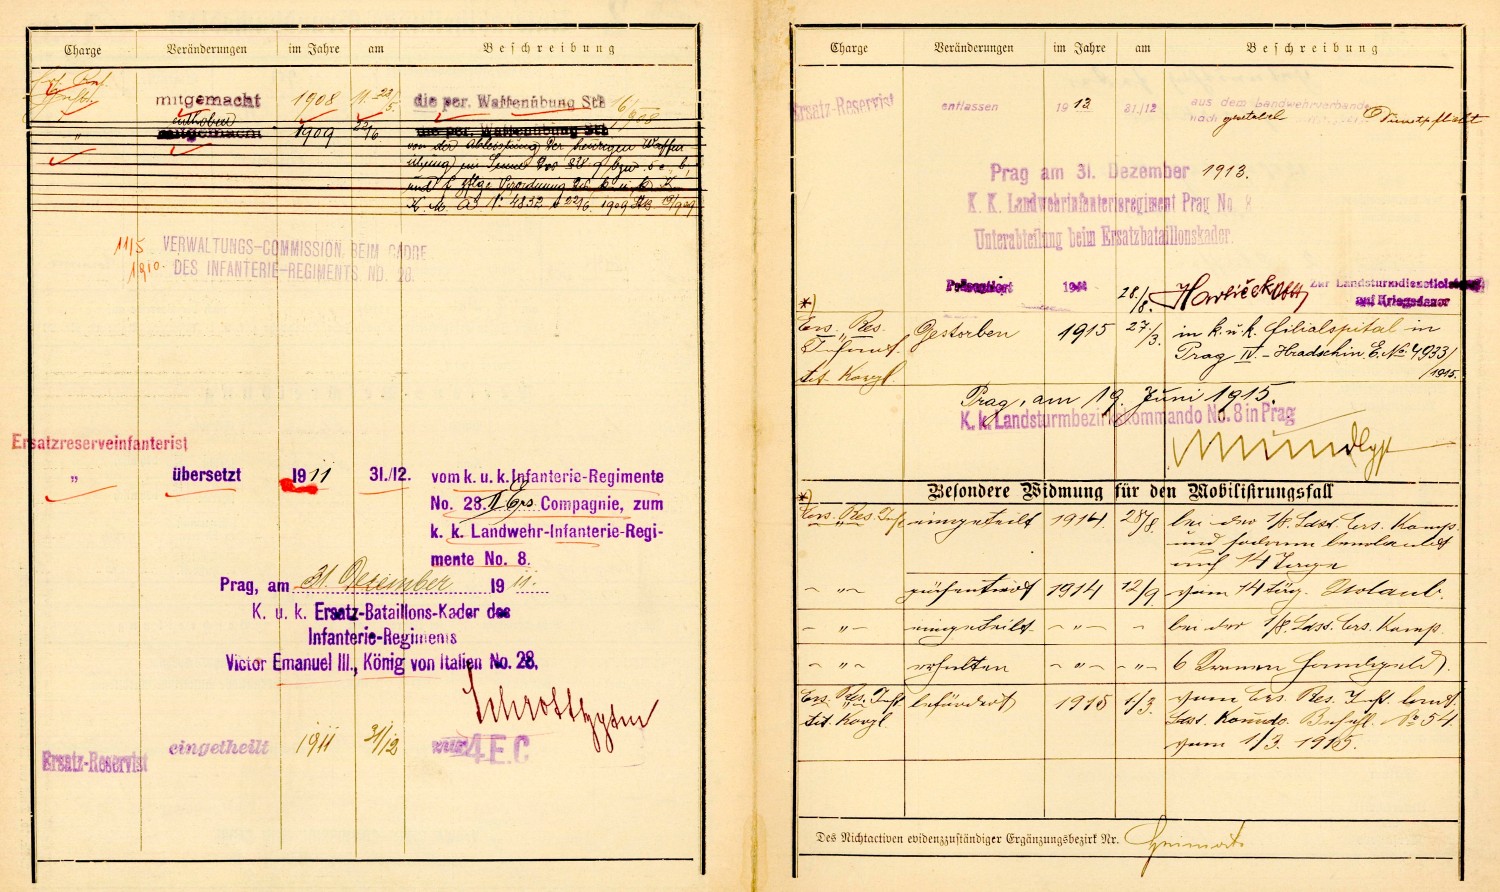 Charge Veränderungen im Jahre am Beschreibung
mitgemacht 1908 11-28/5 die per. Waffenübung Stb 16/ 1908
" enthoben
mitgemacht 1909 22/6 die per. Waffenübung Stb
von der Ableistung der heurigen Waffen
übung im Sinne des
und Verordnung des k. u. k.
K. M. A. No 4832 v 22/6. 1909 19/ 909
11/5 VERWALTUNGS-COMMISSION BEIM CADRE
1910. DES INFANTERIE-REGIMENTS NO. 28.
Ersatzreserveinfanterist
" übersetzt 1911 31./12. vom k. u. k. Infanterie-Regimente
No. 28. II Ers Compagnie, zum
k. k. Landwehr-Infanterie-Regi-
mente No. 8.
Prag, am 31. Dezember 1911.
K. u. k. Ersatz-Bataillons-Kader des
Infanterie-Regiments
Victor Emanuel III., König von Italien No. 28.
Ersatz-Reservist eingetheilt 1911 31/12 zur 4 E.C
Charge Veränderungen im Jahre am Beschreibung
Ersatz-Reservist entlassen 1913 31./12 aus dem Landwehrverbande
nach gestzl Dienstpflicht
Prag am 31. Dezember 1913.
K. K. Landwehrinfanterieregiment Prag No. 8
Unterabteilung beim Ersatzbataillonskader.
*) Präsentiert 1914 28./8. Havlíček Oblt Zur Landsturmdienstleistung
auf Kriegsdauer
Ers. Res. Gestorben 1915 27./3. in k. u. k. Filialspital in
Infant. Prag IV.-Hradschin E. No 4933/
tit. Korpl. /1915.
Prag, am 19. Juni 1915.
K. k. Landsturmbezirkskommando No. 8 in Prag
Besondere Widmung für den Mobilisirungsfall
*)
Ers. Res. Inft eingeteilt 1914. 28/8. bei der 1/8. Ldst. Ers. Komp.
und sodann beurlaubt
auf 14 Tage
" präsentiert 1914 12/9. vom 14 täg. Urlaub.
" eingeteilt " " bei der 1/8. Ldst. Ers. Komp.
" erhalten " " 6 Kronen Handgeld.
Ers. Res. Inft befördert 1915 1/3. zum Ers. Res. Inft. laut
tit. Korpl Ldst. Komdo. Befehl. No 54.
vom 1/3. 1915.
Des Nichtactiven evidenzzuständiger Ergänzungsbezirk Nr.